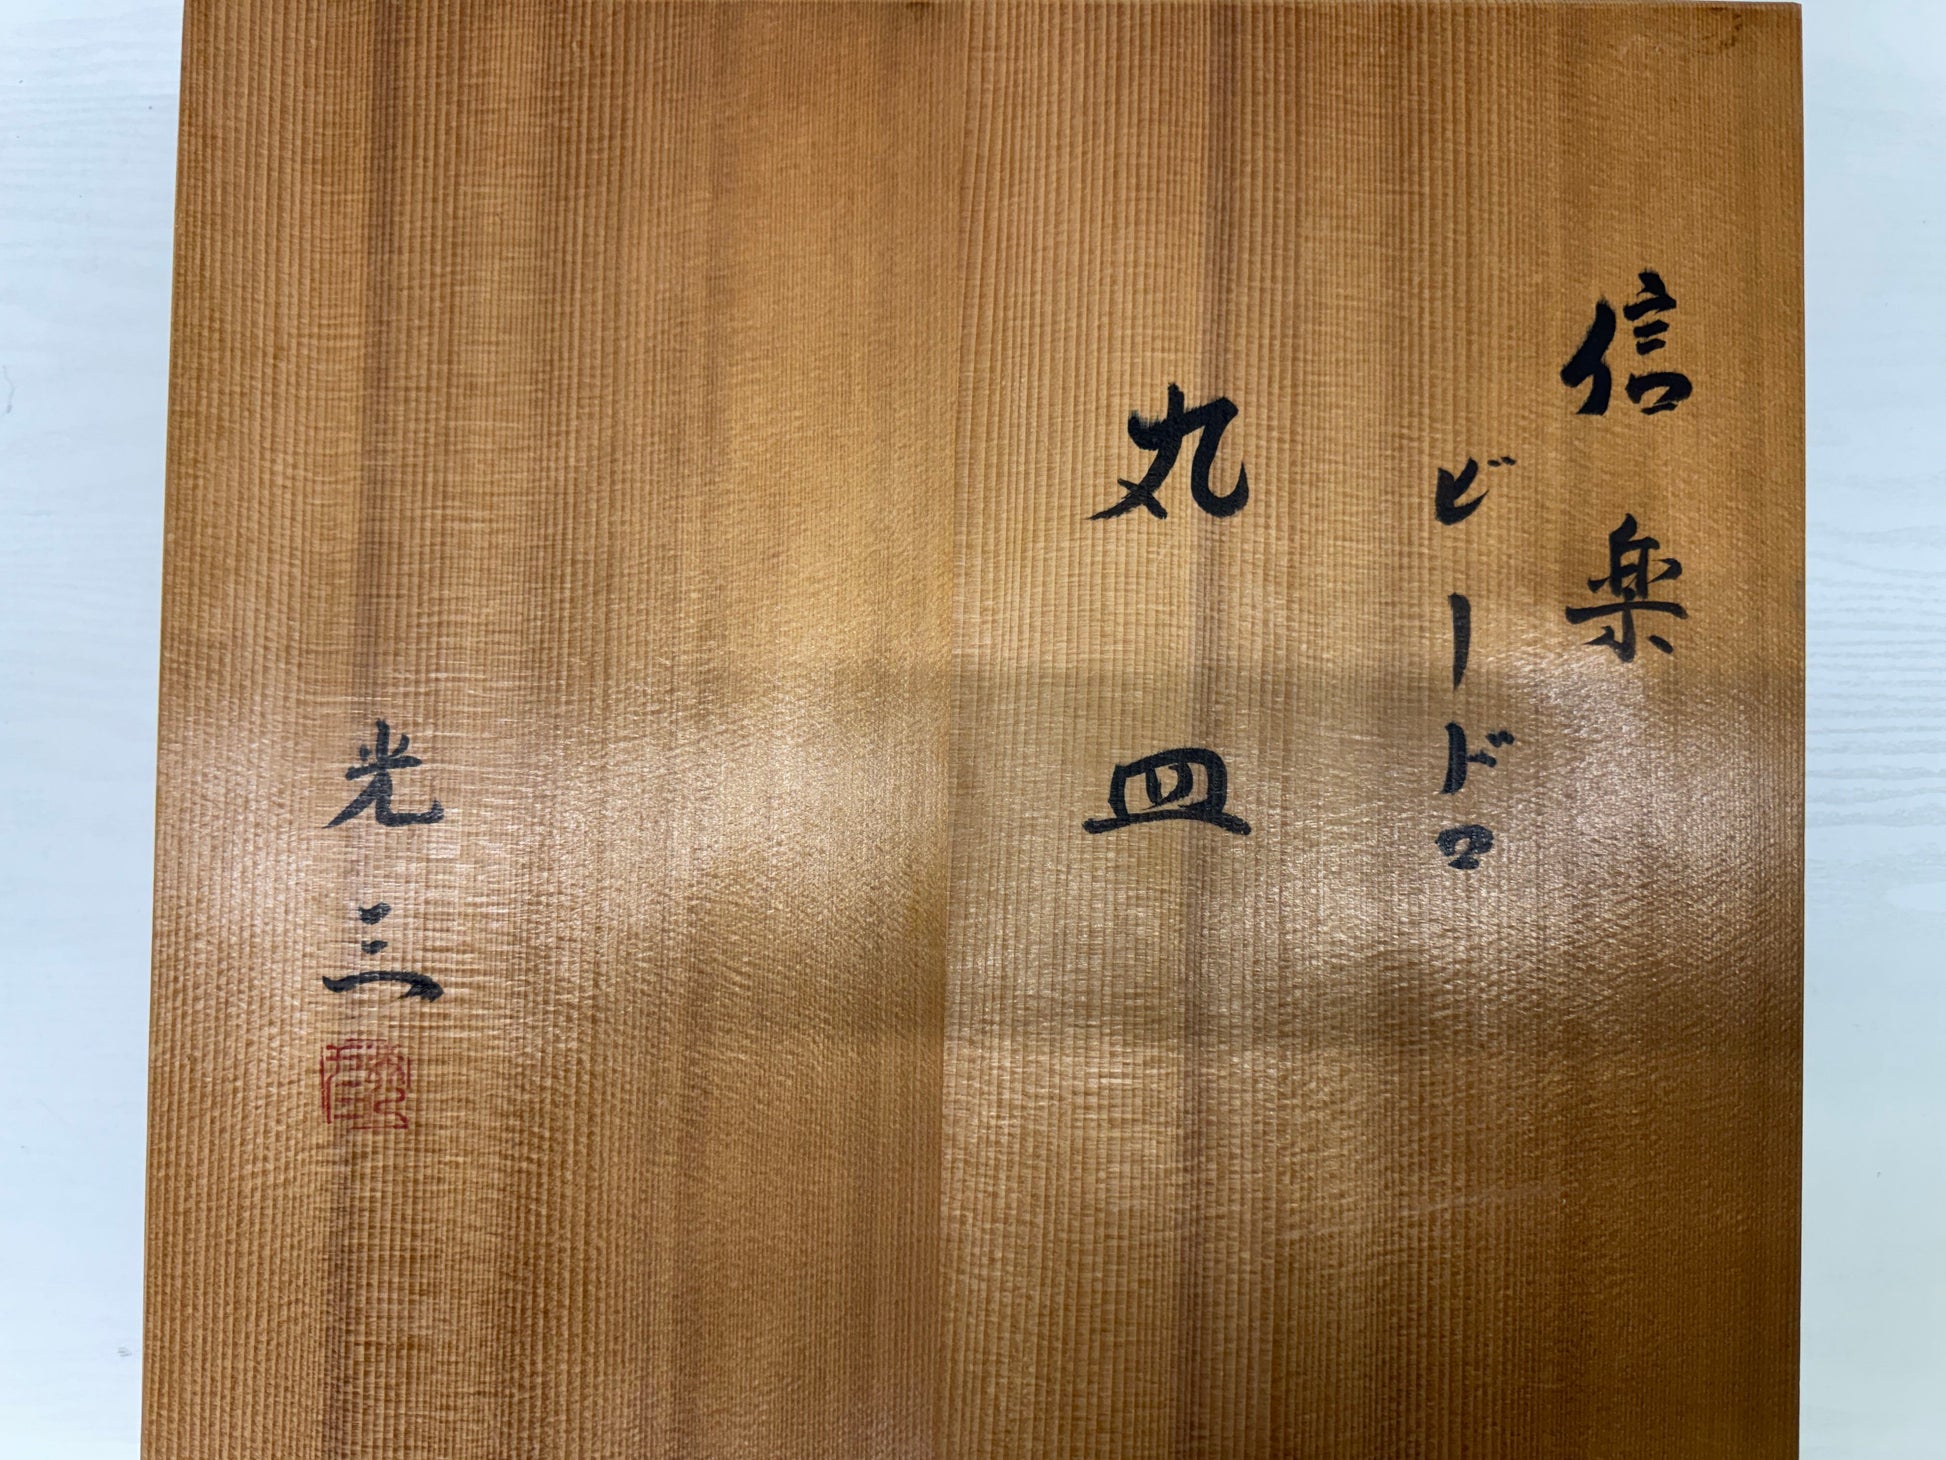 信楽
ビードロ
丸皿
光三